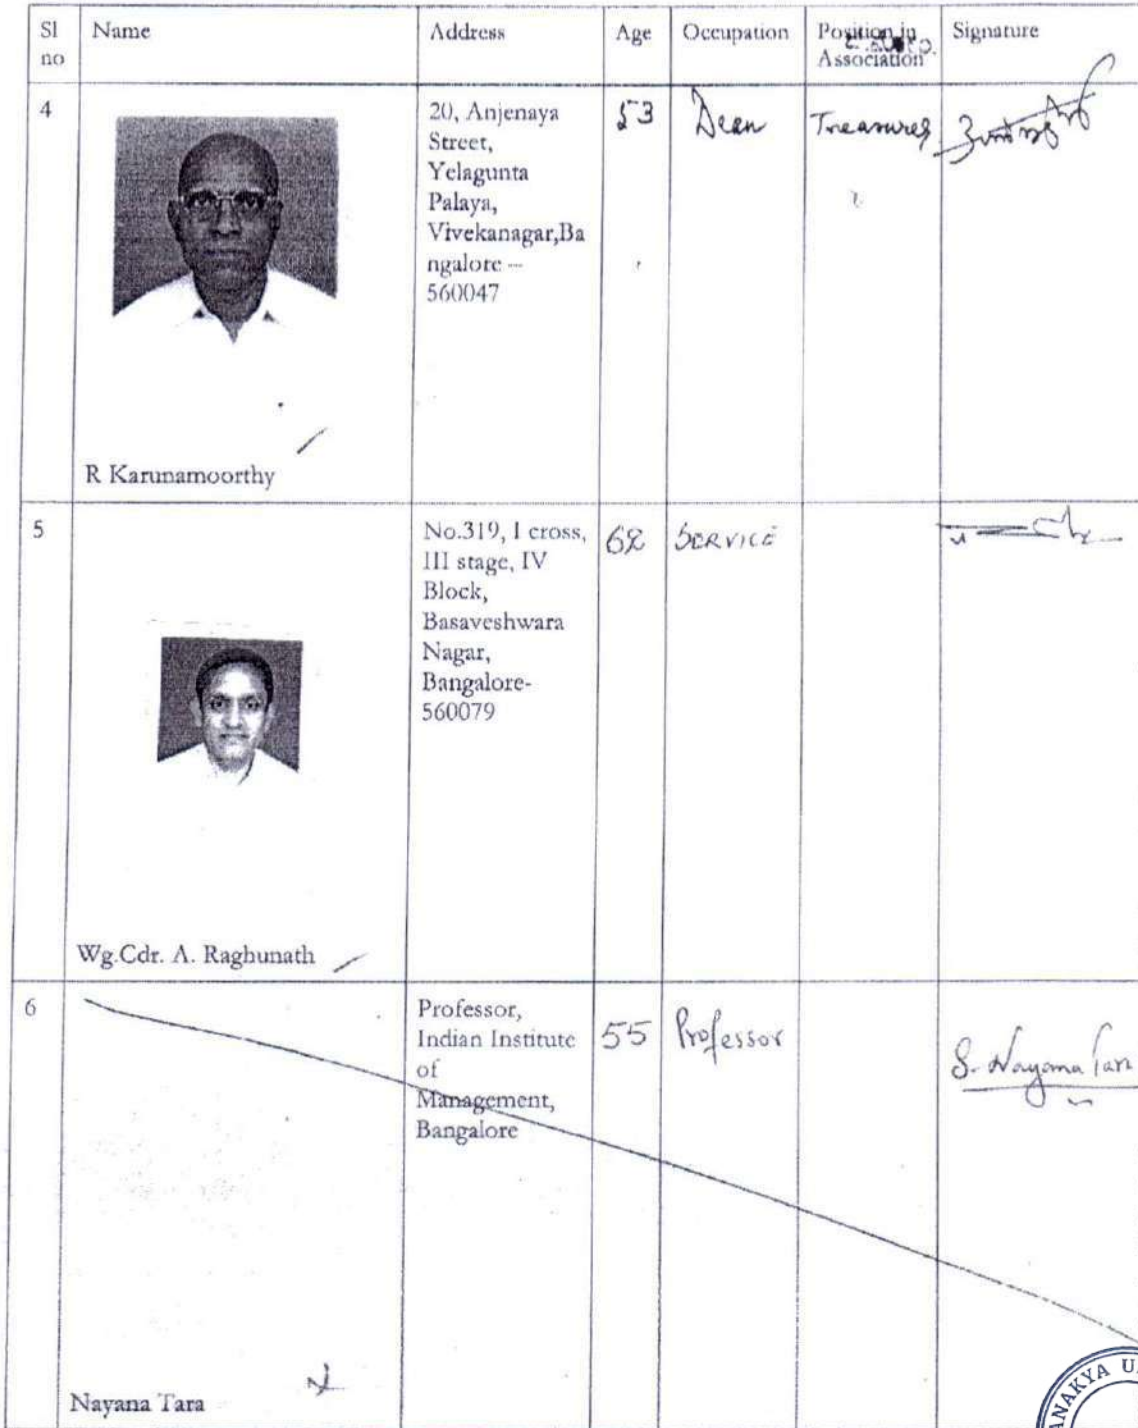 Sl no
Name
Address
Age
Occupation
Position in
Association
Signature
4
R Karunamoorthy
20, Anjenaya
Street,
Yelagunta
Palaya,
Vivekanagar,Ba
ngalore –
560047
53
Dean
Treasurer
5
Wg.Cdr. A. Raghunath
No.319, I cross,
III stage, IV
Block,
Basaveshwara
Nagar,
Bangalore-
560079
62
SERVICE
6
Nayana Tara
Professor,
Indian Institute
of
Management,
Bangalore
55
Professor
S. Nayana Tara